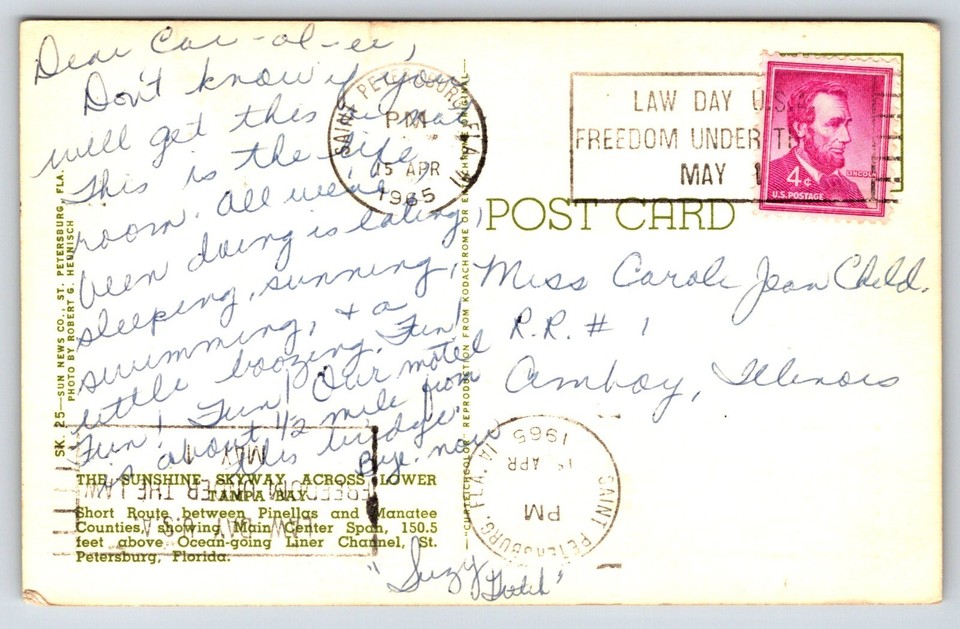 Dear Car-ol-ee,
Don't know if you
will get this or not
This is the life
room. All we've
been doing is eating,
sleeping, sunning,
swimming, & a
little boozing. Fun!
Fun! Fun! Our motel
is about 1/2 mile from
this bridge.
Bye now
"Suzy
SAINT PETERSBURG FLA
PM
15 APR
1965
LAW DAY U.S.
FREEDOM UNDER T
MAY 1
4¢
LINCOLN
U.S. POSTAGE
POST CARD
Miss Carole Jean Child.
R.R. # 1
Amboy, Illinois
SK. 25—SUN NEWS CO., ST. PETERSBURG, FLA.
PHOTO BY ROBERT G. HENNISCH
REPRODUCTION FROM KODACHROME OR
ORIGINAL
THE SUNSHINE SKYWAY ACROSS LOWER
TAMPA BAY
Short Route between Pinellas and Manatee
Counties, showing Main Center Span, 150.5
feet above Ocean-going Liner Channel, St.
Petersburg, Florida.
SAINT PETERSBURG, FLA.
PM
15 APR
1965
LAW DAY U.S.A.
FREEDOM UNDER THE LAW
MAY 1